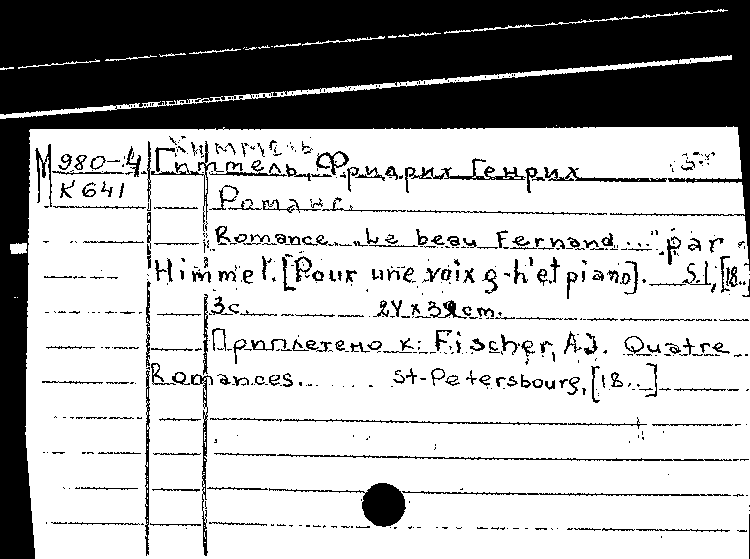 Химмель
М 980-4 Гиммель, Фридрих Генрих
К 641
Романс.
Romance „Le beau Fernand..." par
Himmel. [Pour une voix g-h' et piano]. S.l., [18..]
3с. 24x32cm.
Приплетено к: Fischer, A.J. Quatre
Romances. St-Petersbourg, [18..]